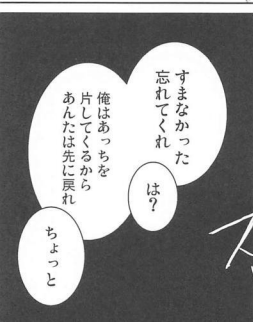 すまなかった
忘れてくれ
は？
俺はあっちを
片してくるから
あんたは先に戻れ
ちょっと